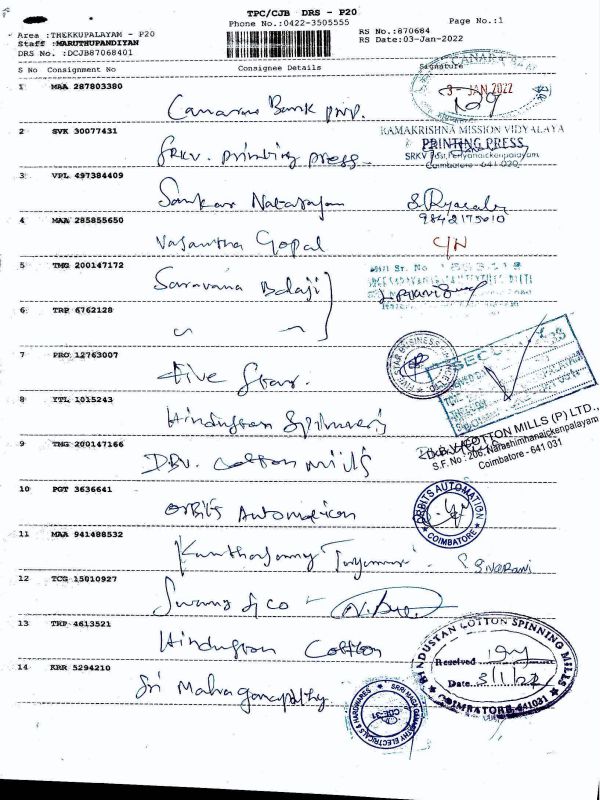 TPC/CJB DRS - P20
Phone No.:0422-3505555
Page No.:1
Area :THEKKUPALAYAM - P20
RS No.:870684
Staff :MARUTHUPANDIYAN
RS Date:03-Jan-2022
DRS No. :DCJB87068401
S No Consignment No Consignee Details Signature
1 MAA 287803380
Canara Bank
3- JAN 2022
2 SVK 30077431
SRKV. printing press
RAMAKRISHNA MISSION VIDYALAYA
PRINTING PRESS,
SRKV Post, Periyanaickenpalayam
Coimbatore - 641 020.
3 VPL 497384409
Sankar Natarajan
9842175010
4 MAA 285855650
Vasantha Gopal
5 TMG 200147172
Saravana Balaji
6 TRP 6762128
7 PRO 12763007
Five Star.
8 YTL 1015243
Hindustan Spinners
9 TMG 200147166
DBV. Cotton mills
SECURITY
D.B.V. COTTON MILLS (P) LTD.,
S.F. No : 206, Narashimhanaickenpalayam
Coimbatore - 641 031
10 PGT 3636641
ORBITS Automation
ORBITS AUTOMATION
COIMBATORE
11 MAA 941488532
12 TCG 15010927
13 TRP 4613521
Hindustan Cotton
HINDUSTAN COTTON SPINNING MILLS
Received
Date 3/1/22
COIMBATORE-641031
14 KRR 5294210
Sri Maha Ganapathy
SRRI MAGA GANAPATHY ELECTRICALS & HARDWARES
CBE-31